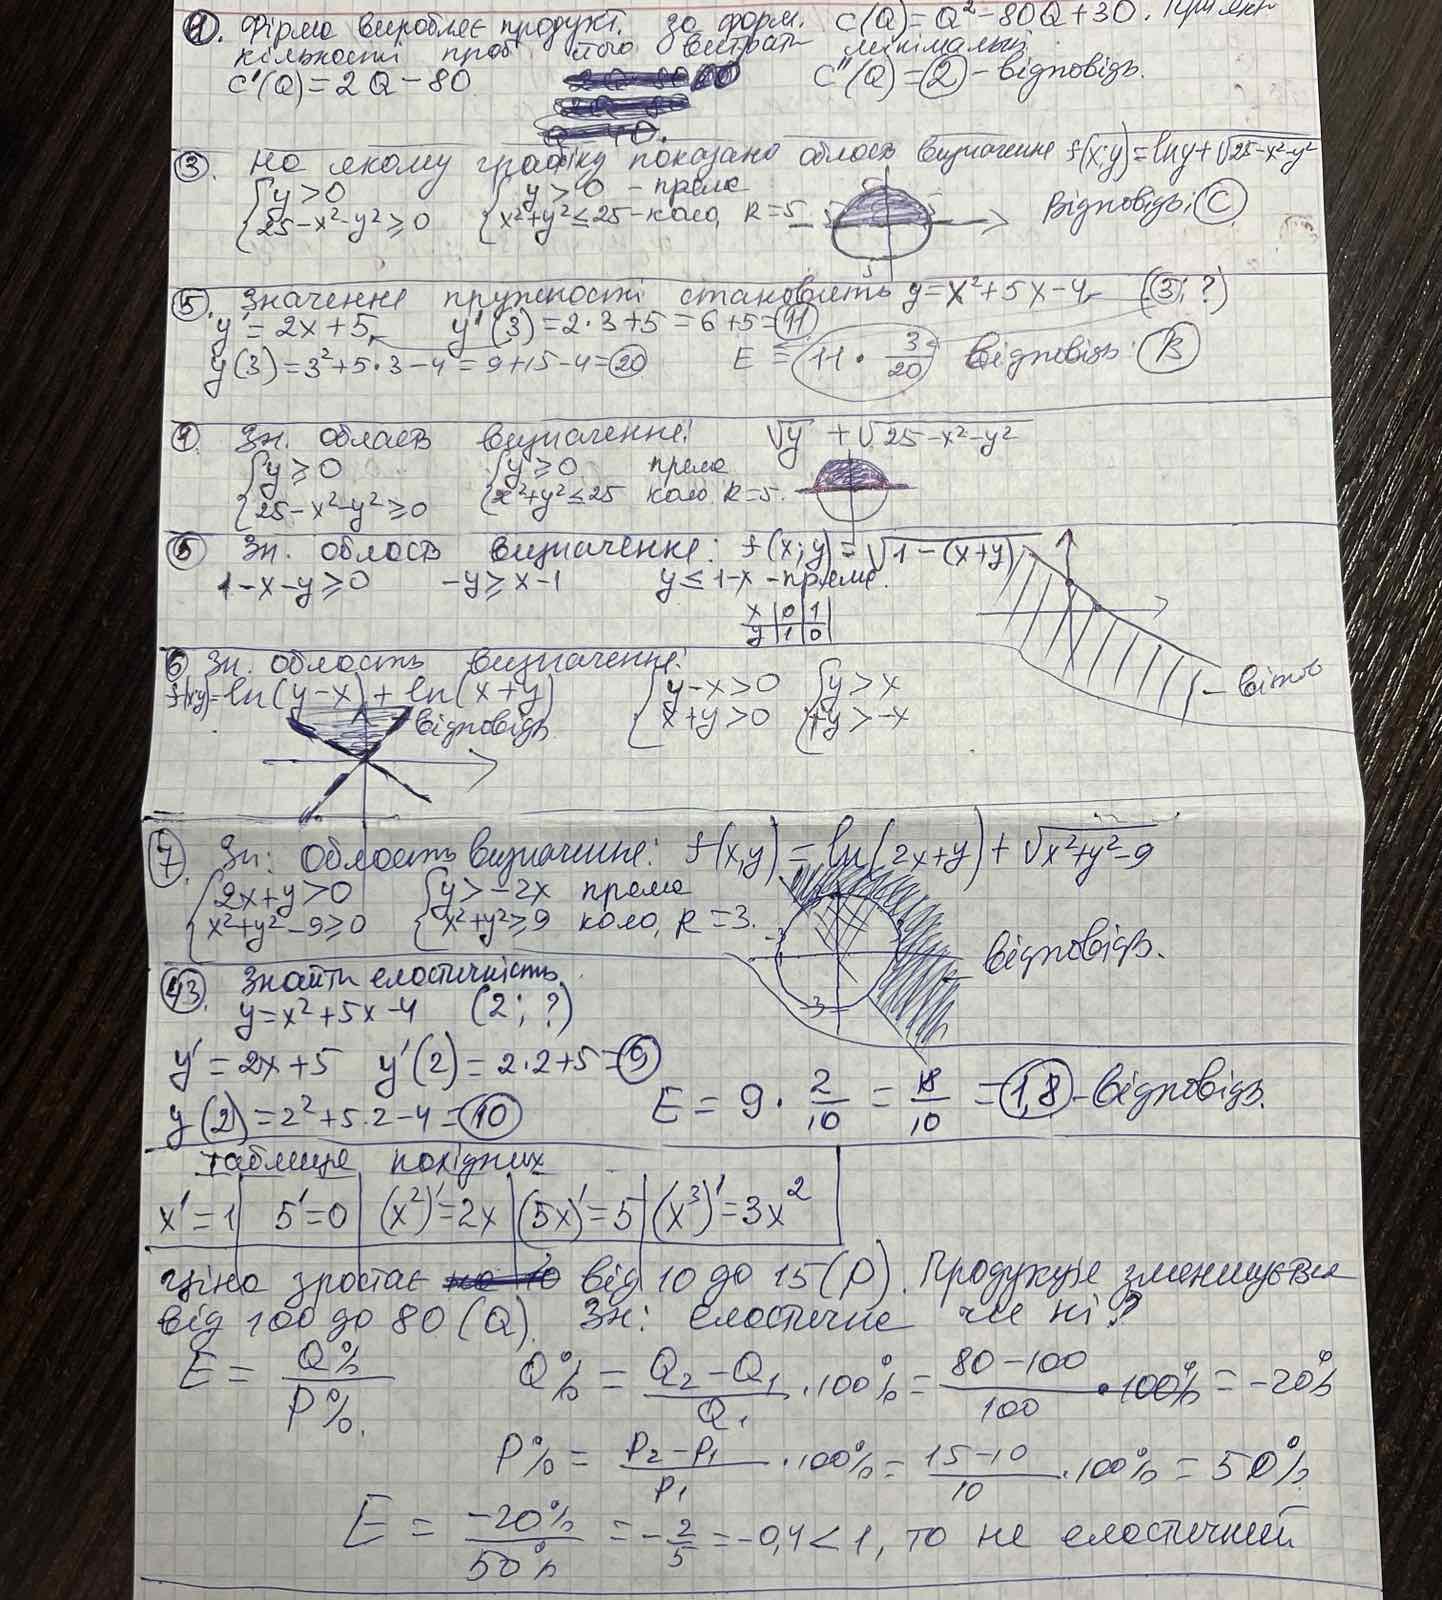 1. Фірма виробляє продукт. за форм. C(Q)=Q²-80Q+30. При якій
кількості його витрати мінімальні
C'(Q)=2Q-80 C''(Q)=2-відповідь.
3. На якому графіку показано область визначення f(x;y)=lny+√25-x²-y²
{y>0 {y>0 - пряма
{25-x²-y²≥0 {x²+y²≤25-коло, R=5 Відповідь: C
5. Значення пружності становить y=x²+5x-4 (3; ?)
y'=2x+5 y'(3)=2·3+5=6+5=11
y(3)=3²+5·3-4=9+15-4=20 E=11·3/20 Відповідь: B
Зн. область визначення: √y+√25-x²-y²
{y≥0 {y≥0 пряма
{25-x²-y²≥0 {x²+y²≤25 коло R=5.
5 Зн. область визначення: f(x;y)=√1-(x+y)
1-x-y≥0 -y≥x-1 y≤1-x-пряма.
x|0|1|
y|1|0|
- відпов
6 Зн. область визначення:
f(xy)=ln(y-x)+ln(x+y) {y-x>0 {y>x
відповідь {x+y>0 {+y>-x
7. Зн: Область визначення: f(x,y)=ln(2x+y)+√x²+y²-9
{2x+y>0 {y>-2x пряма
{x²+y²-9≥0 {x²+y²≥9 коло, R=3.
-3 3
-3
- відповідь.
43. Знайти еластичність
y=x²+5x-4 (2; ?)
y'=2x+5 y'(2)=2·2+5=9
y(2)=2²+5·2-4=10 E=9·2/10=18/10=1,8-відповідь.
Таблиця похідних
x'=1| 5'=0 |(x²)'=2x|(5x)'=5|(x³)'=3x²
Ціна зростає від 10 до 15(P). Продукція зменшується
від 100 до 80 (Q). Зн: еластичне чи ні?
E=Q%/P%. Q%=Q₂-Q₁/Q₁·100%=80-100/100·100%=-20%
P%=P₂-P₁/P₁·100%=15-10/10·100%=50%
E=-20%/50%=-2/5=-0,4<1, то не еластичний